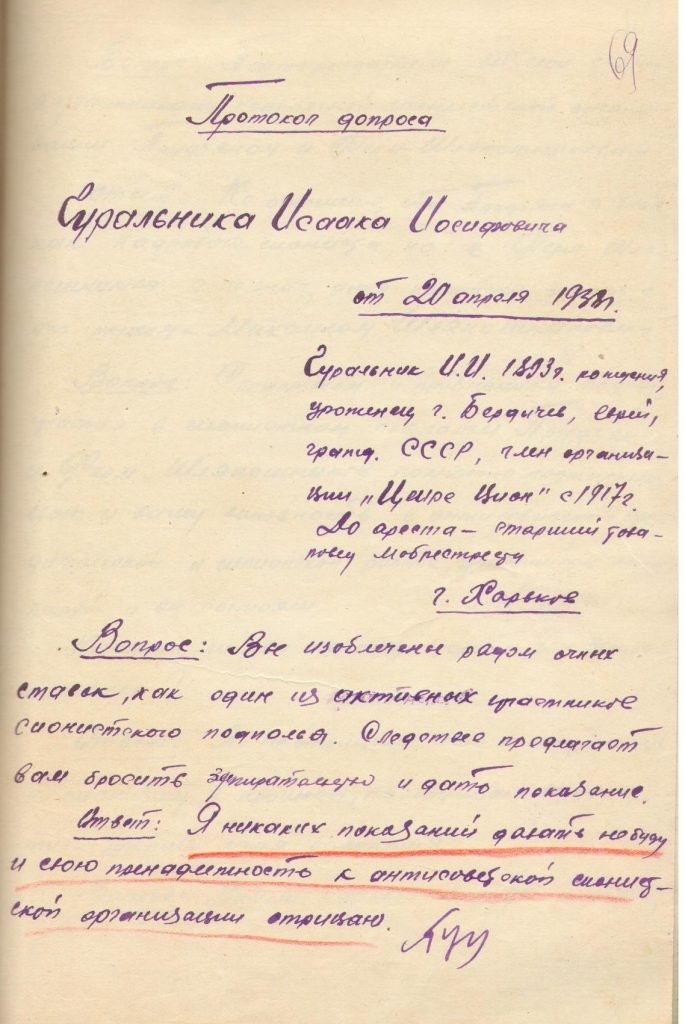 69
Протокол допроса
Гуральника Исаака Иосифовича
от 20 апреля 1938г.
Гуральник И.И. 1893г. рождения,
уроженец г. Бердичев, еврей,
гражд. СССР, член организа-
ции "Цеире Цион" с 1917г.
До ареста – старший това-
ровед
г. Харьков
Вопрос: Вы изобличены рядом очных
ставок, как один из активных участников
сионистского подполья. Следствие предлагает
вам бросить запирательство и дать показание.
Ответ: Я никаких показаний давать не буду
и свою принадлежность к антисоветской сионист-
ской организации отрицаю.